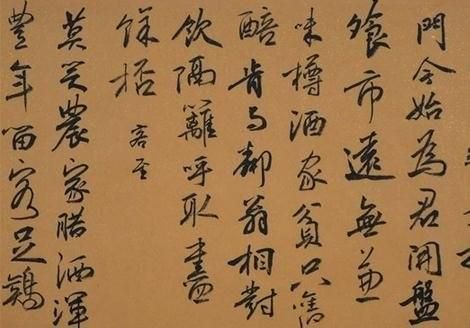 門今始為君開盤
飧市遠無兼
味樽酒家貧只舊
醅肯与鄰翁相對
飲隔籬呼取盡
餘杯 客至
莫笑農家腊酒渾
豐年留客足鷄